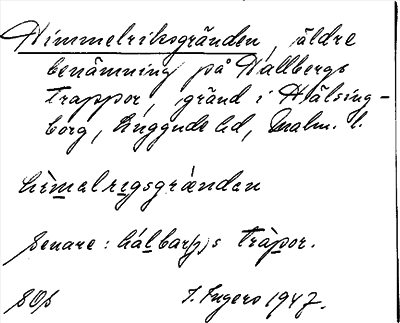 Himmelriksgränden, äldre
benämning på Hallbergs
Trappor, gränd i Hälsing-
borg, Luggude hd, Malm. l.
hìmelrigsgrænden
senare: hálbarjs tràpor.
I. Ingers 1947.